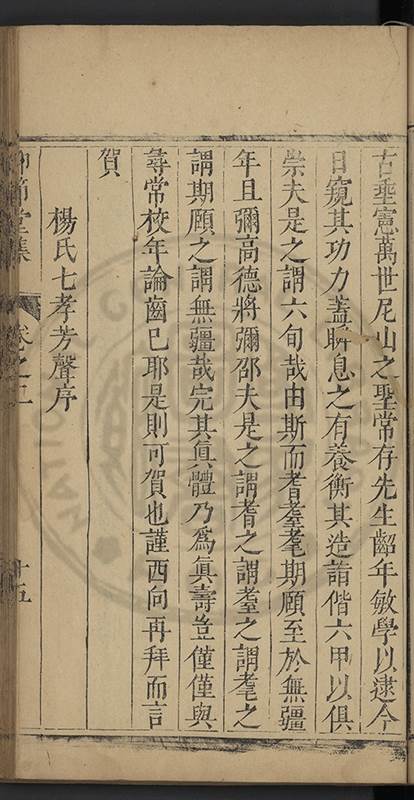 古垂憲萬世尼山之聖常存先生齠年敏學以逮今
日窺其功力蓋瞬息之有養衡其造詣偕六甲以俱
崇夫是之謂六旬哉由斯而耆耋耄期頤至於無疆
年且彌高德將彌邵夫是之謂耆之謂耋之謂耄之
謂期頤之謂無疆哉完其真體乃為真壽豈僅僅與
尋常校年論齒已耶是則可賀也謹西向再拜而言
賀
楊氏七孝芳聲序
節堂集
卷之二
十五